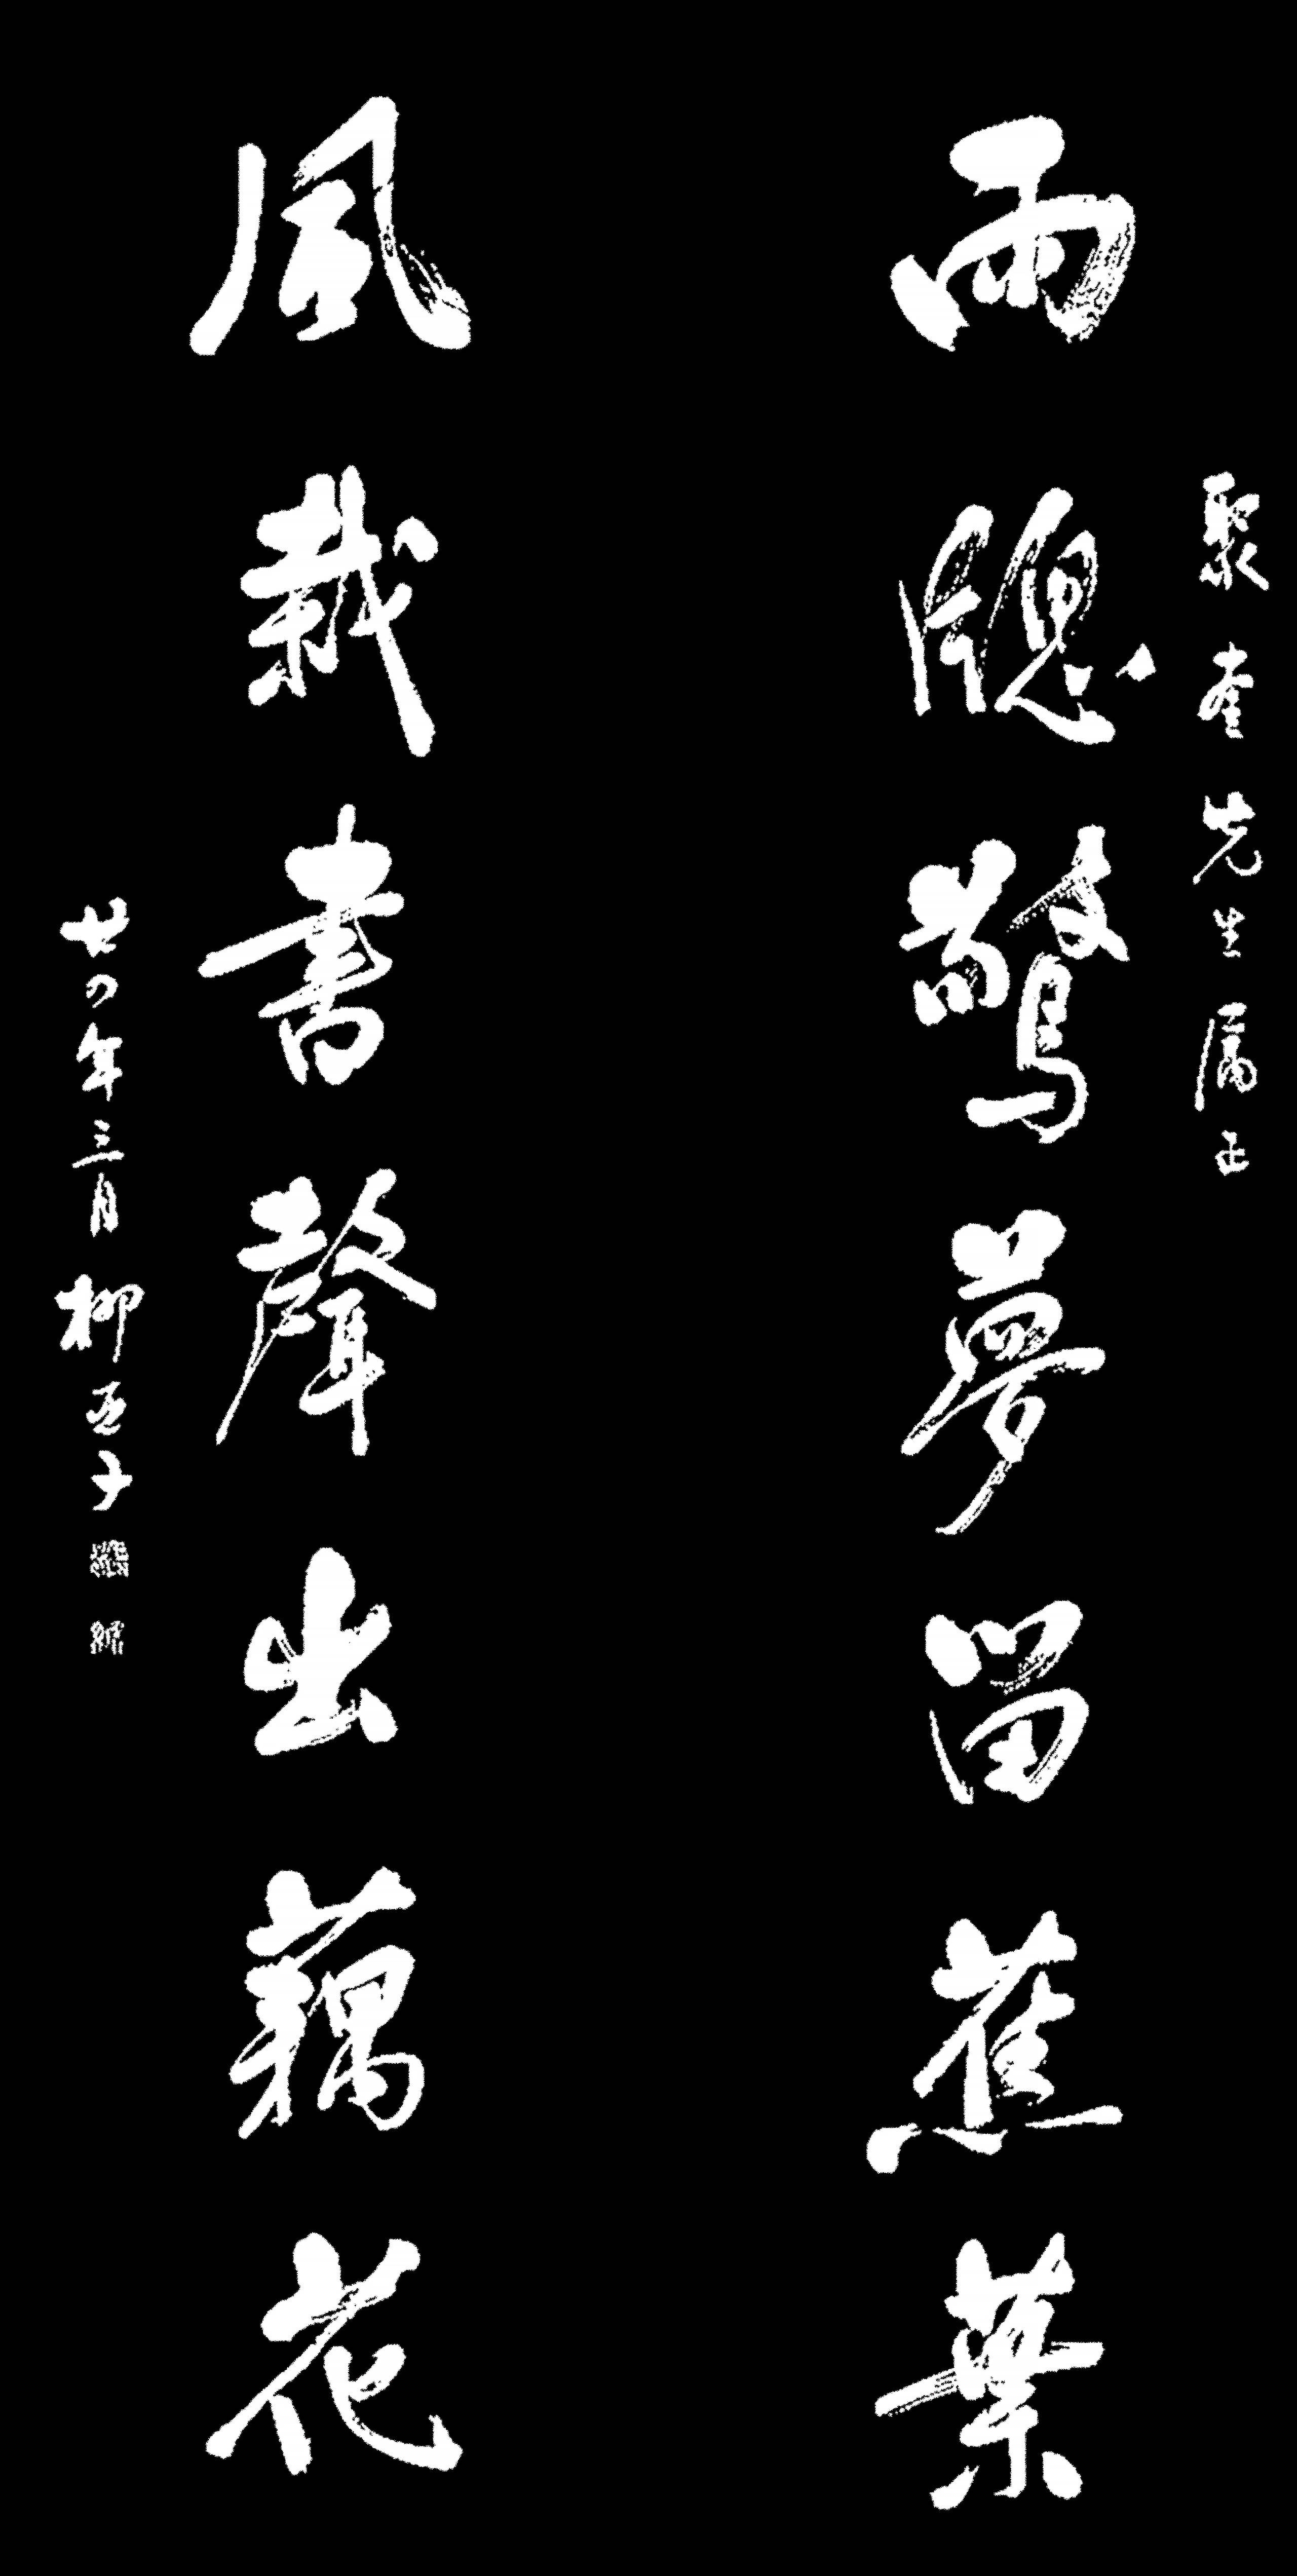 聚奎先生属正
雨牕驚夢留蕉葉
風栽書聲出藕花
廿四年三月 柳亞子